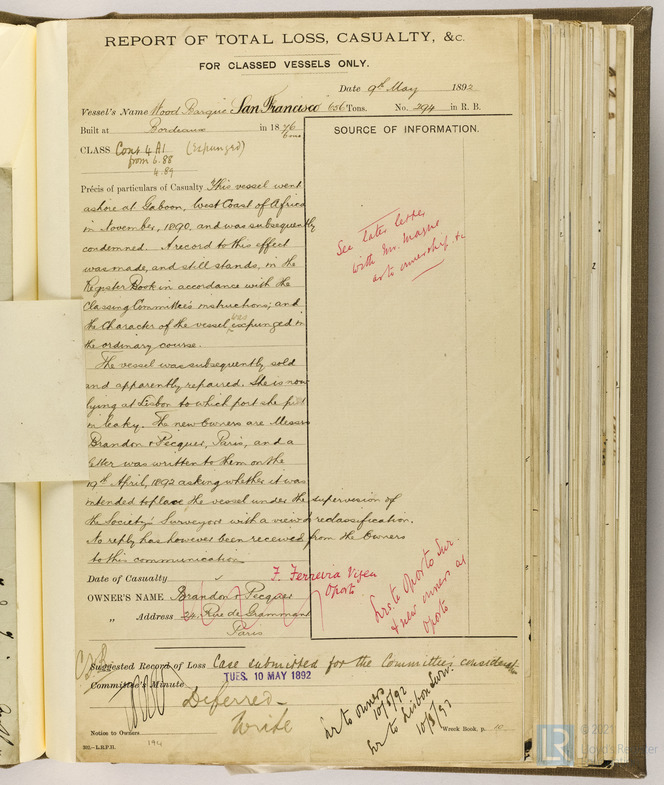 REPORT OF TOTAL LOSS, CASUALTY, &c.
FOR CLASSED VESSELS ONLY.
Date 9th May 1892
Vessel's Name Wood Barque San Francisco 656 Tons. No. 294 in R. B.
Built at Bordeaux in 1876
6 mo
CLASS Cont 4 A1 (Expunged)
from 6.88
4.89
SOURCE OF INFORMATION.
Précis of particulars of Casualty This vessel went
ashore at Gaboon, West Coast of Africa
in November, 1890, and was subsequently
condemned. A record to this effect
was made, and still stands, in the
Register Book in accordance with the
Classing Committee's instructions; and
the Character of the vessel was expunged in
the ordinary course.
The vessel was subsequently sold
and apparently repaired. She is now
lying at Lisbon to which port she put
in leaky. The new Owners are Messrs
Brandon & Pecquer, Paris, and a
letter was written to them on the
19th April, 1892 asking whether it was
intended to place the vessel under the supervision of
the Society's Surveyors with a view to reclassification.
No reply has however been received from the Owners
to this communication
See later letter
with Mr. Magne
as to ownership &c
Date of Casualty
F. Ferreira Viseu
Oporto
OWNER'S NAME Brandon & Pecquer
„ Address 24, Rue de Grammont
Paris
Lrs. to Oporto Sur.
& new owners at
Oporto
Suggested Record of Loss Case submitted for the Committee's consideration
Committee's Minute TUES. 10 MAY 1892
Deferred
Write
Lr to owners
10/5/92
Lr to Lisbon Surv.
10/5/92
Notice to Owners
Wreck Book, p. 10
194
© 2021
Lloyd's Register
LR